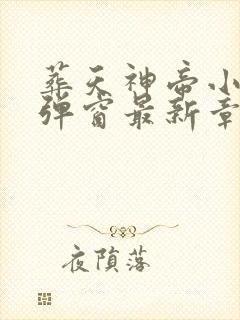 葬天神帝小
弹窗最新章
夜陨落